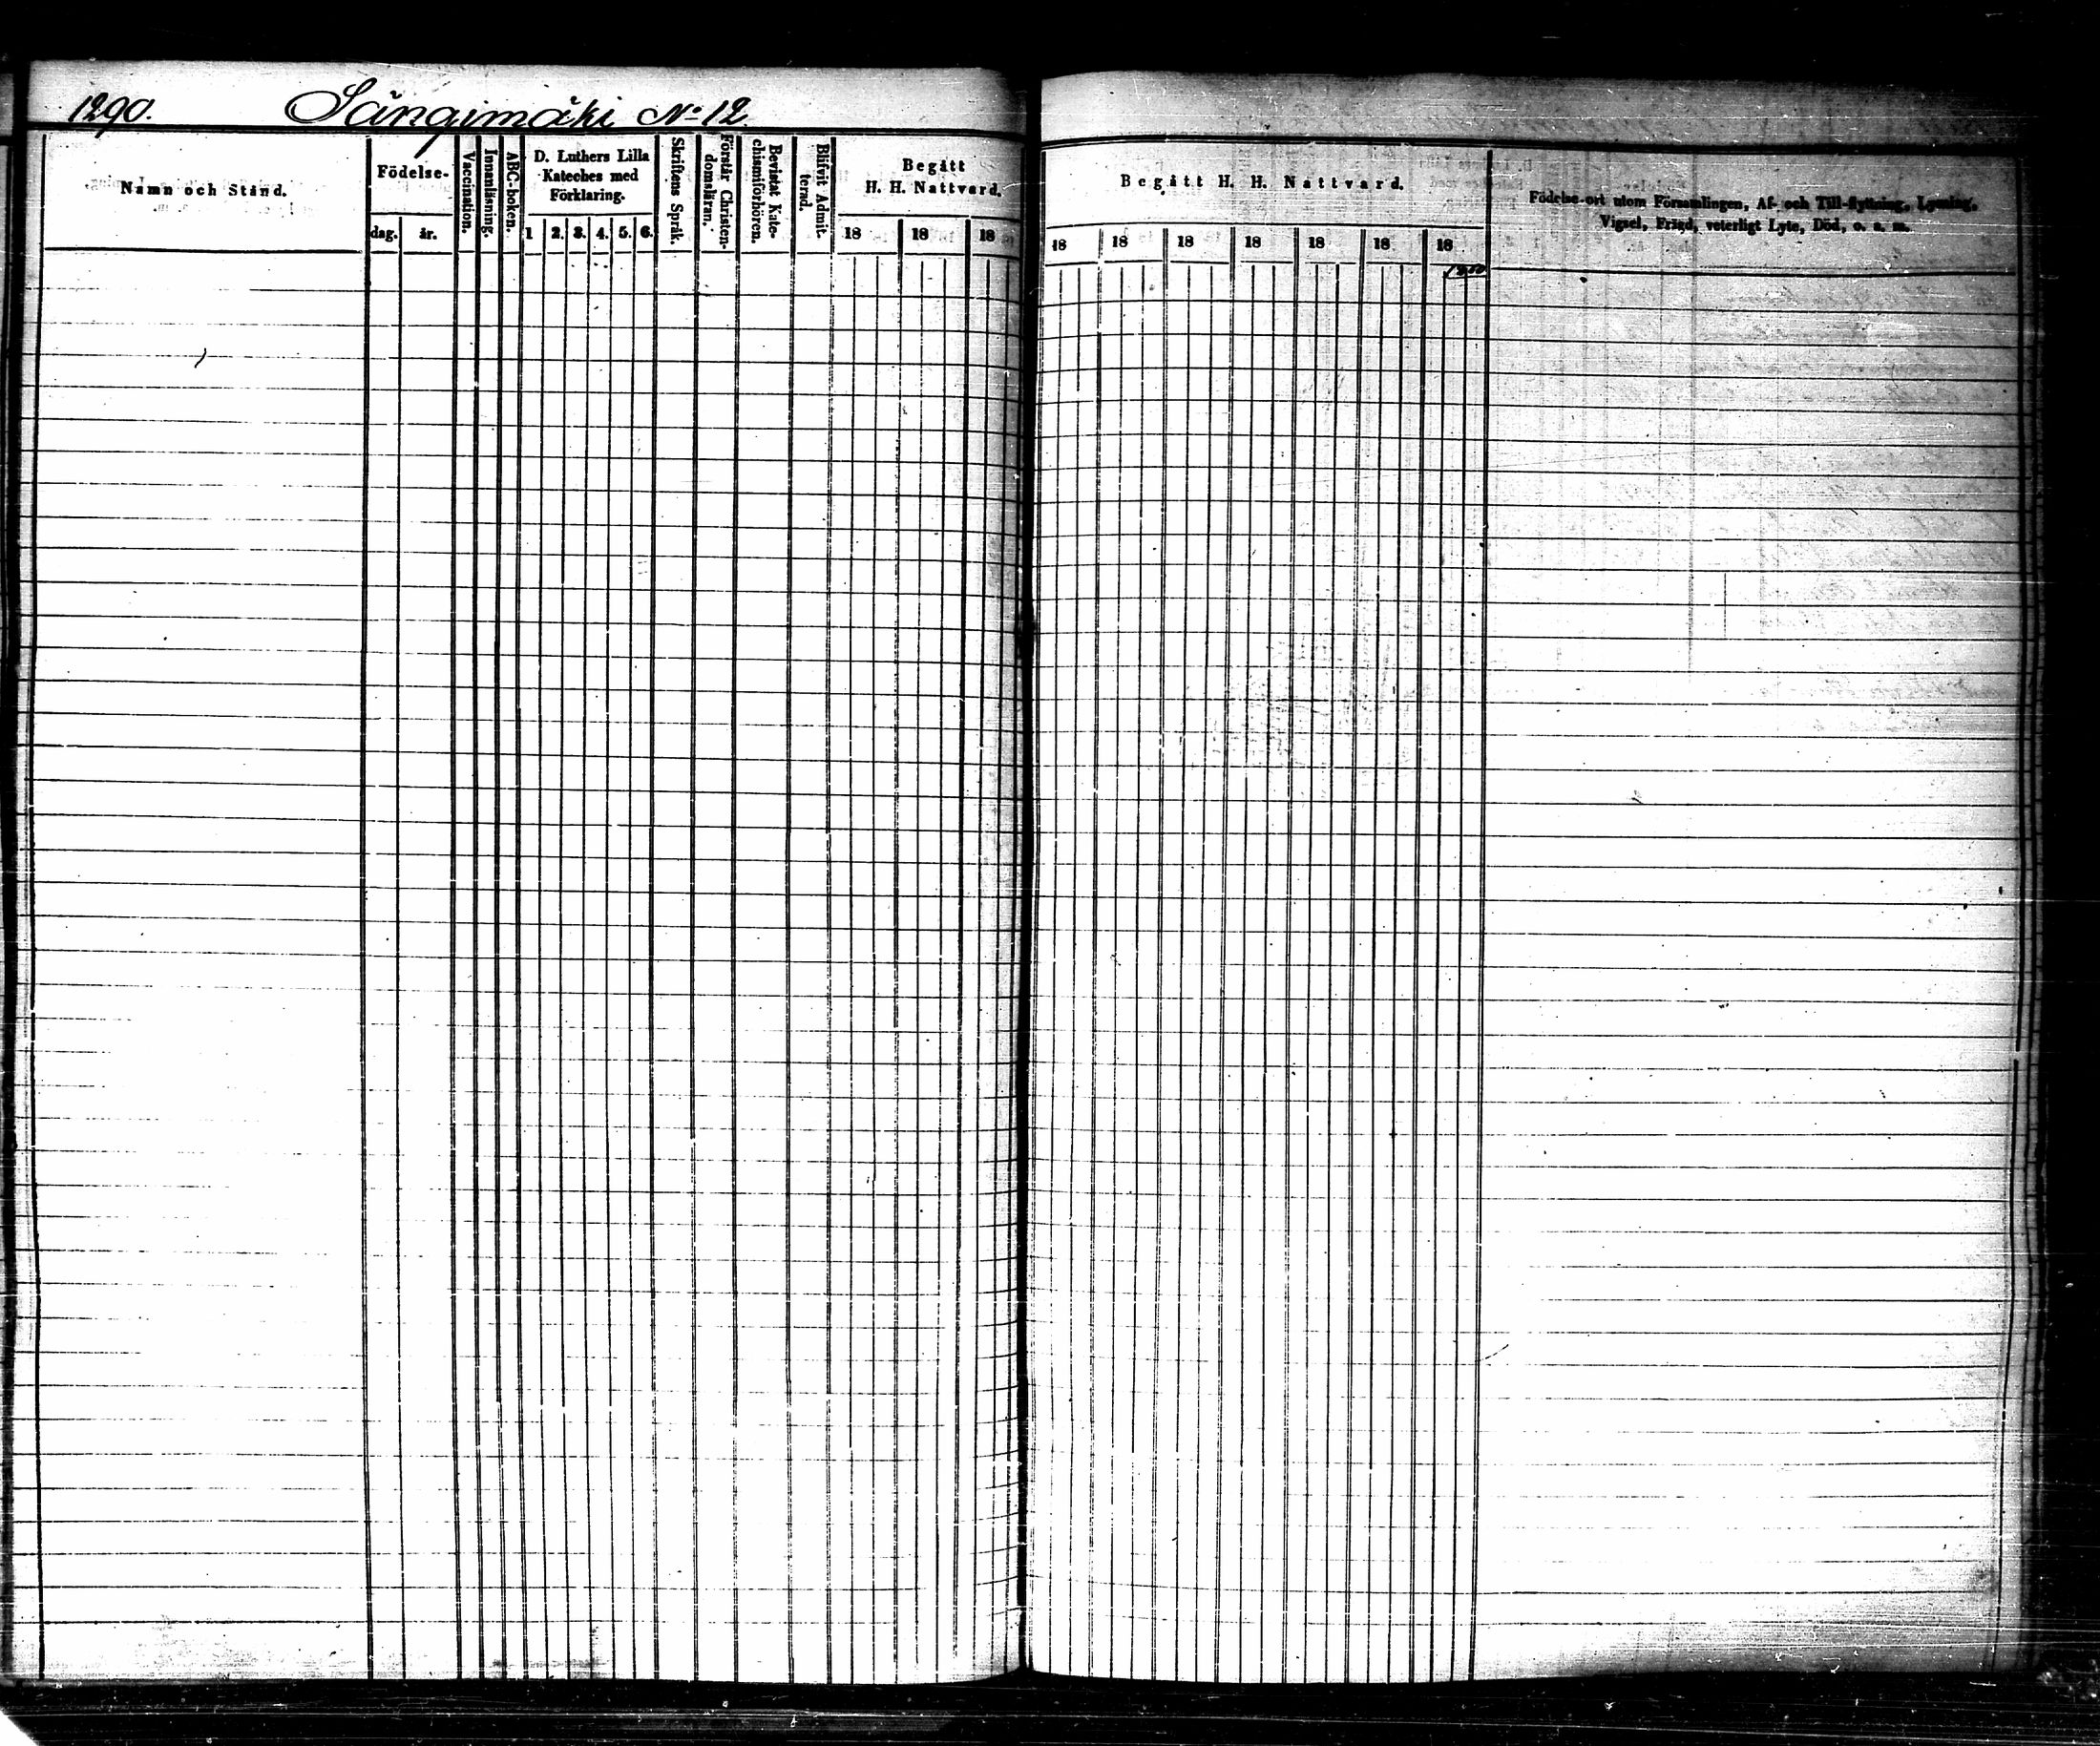 1290. Sängimäki No 12.
Namn och Stånd.
Födelse-
dag. år.
Vaccination.
Innanläsning.
ABC-boken.
D. Luthers Lilla
Kateches med
Förklaring.
1 2. 3. 4. 5. 6.
Skriftens Språk.
Förstår Christen-
domsläran.
Bevistat Kate-
chismiförhören.
Blifvit Admit-
terad.
Begått
H. H. Nattvard.
18 18 18
Begått H. H. Nattvard.
18 18 18 18 18 18 18
Födelse-ort utom Församlingen, Af- och Till-flyttning, Lysning,
Vigsel, Fräjd, veterligt Lyte, Död, o. s. m.